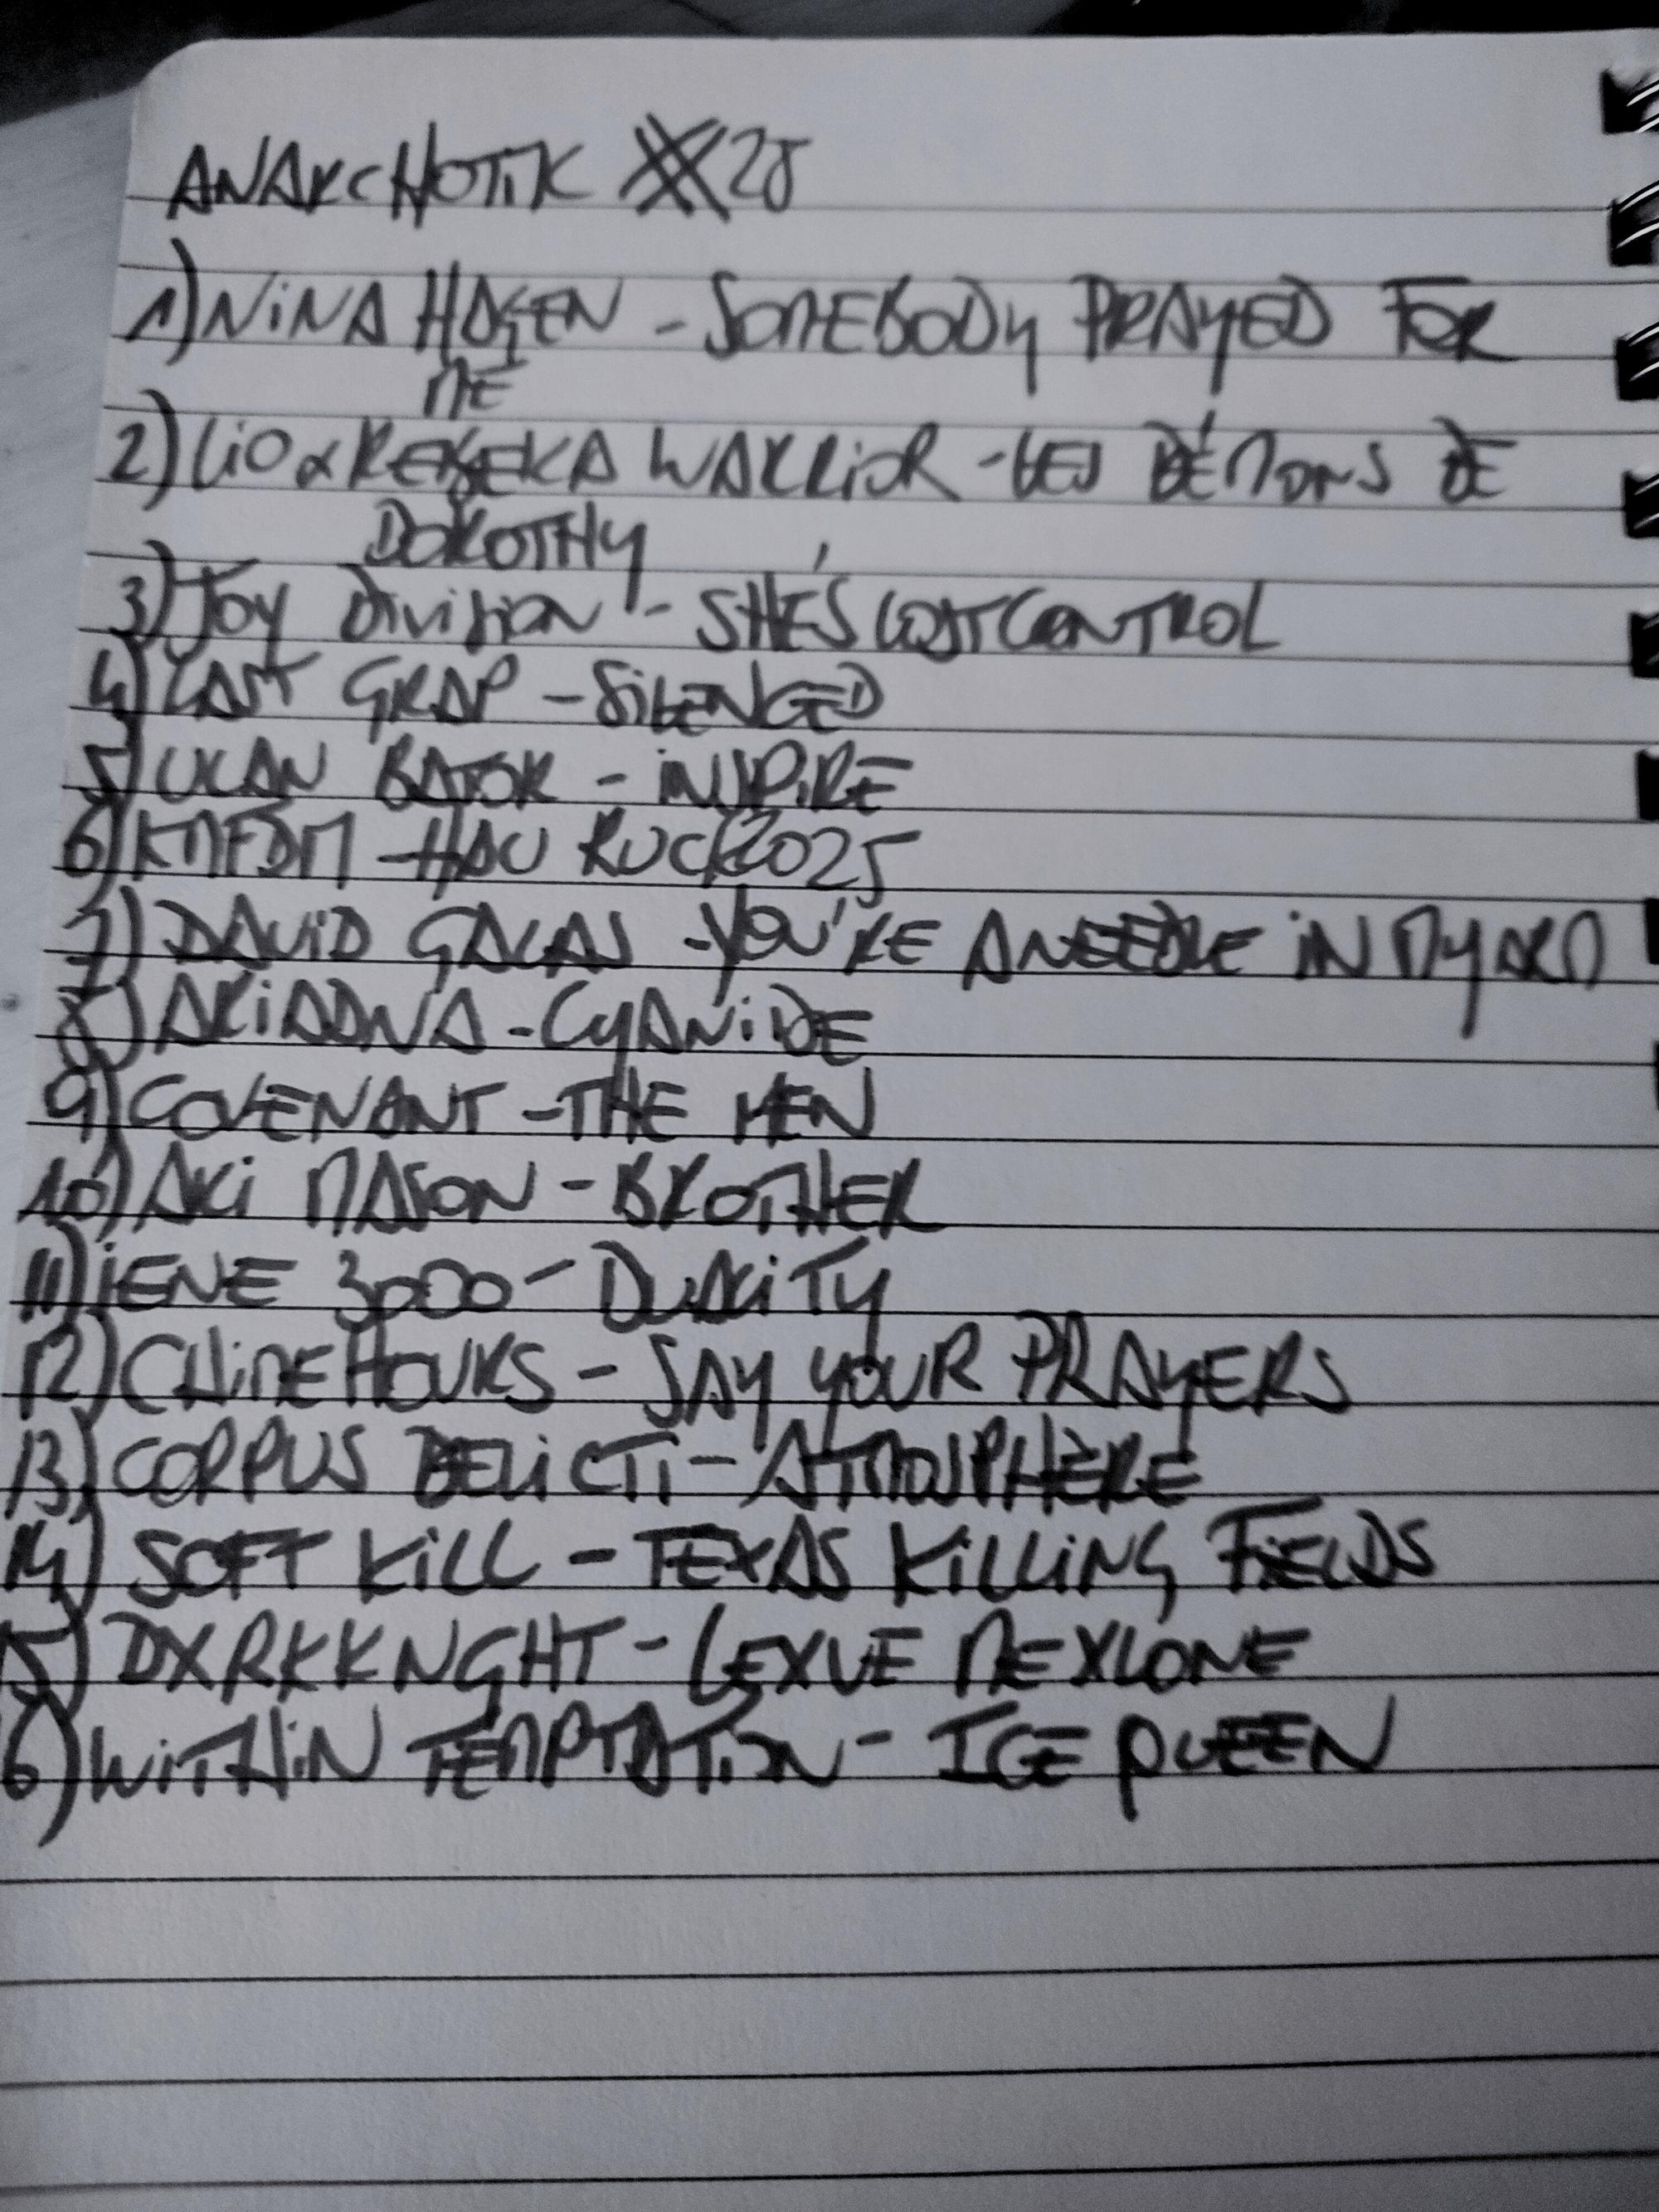 ANARCHOTIK #25
1) NINA HAGEN - SOMEBODY PRAYED FOR
ME
2) LIO & REBEKA WARRIOR - LES DÉMONS DE
DOROTHY
3) JOY DIVISION - SHE'S LOST CONTROL
4) LAST GRAP - SILENCED
5) ULAN BATOR - INSPIRE
6) KMFDM - HAU RUCK 2025
7) DAVID GALAS - YOU'RE A NEEDLE IN MY ARM
8) ARIADNA - CYANIDE
9) COVENANT - THE MEN
10) AKI MASON - BROTHER
11) IENE 3000 - DUALITY
12) CHIME HOURS - SAY YOUR PRAYERS
13) CORPUS DELICTI - ATMOSPHERE
14) SOFT KILL - TEXAS KILLING FIELDS
15) DXRKKNGHT - LEXVE ME XLONE
6) WITHIN TEMPTATION - ICE QUEEN